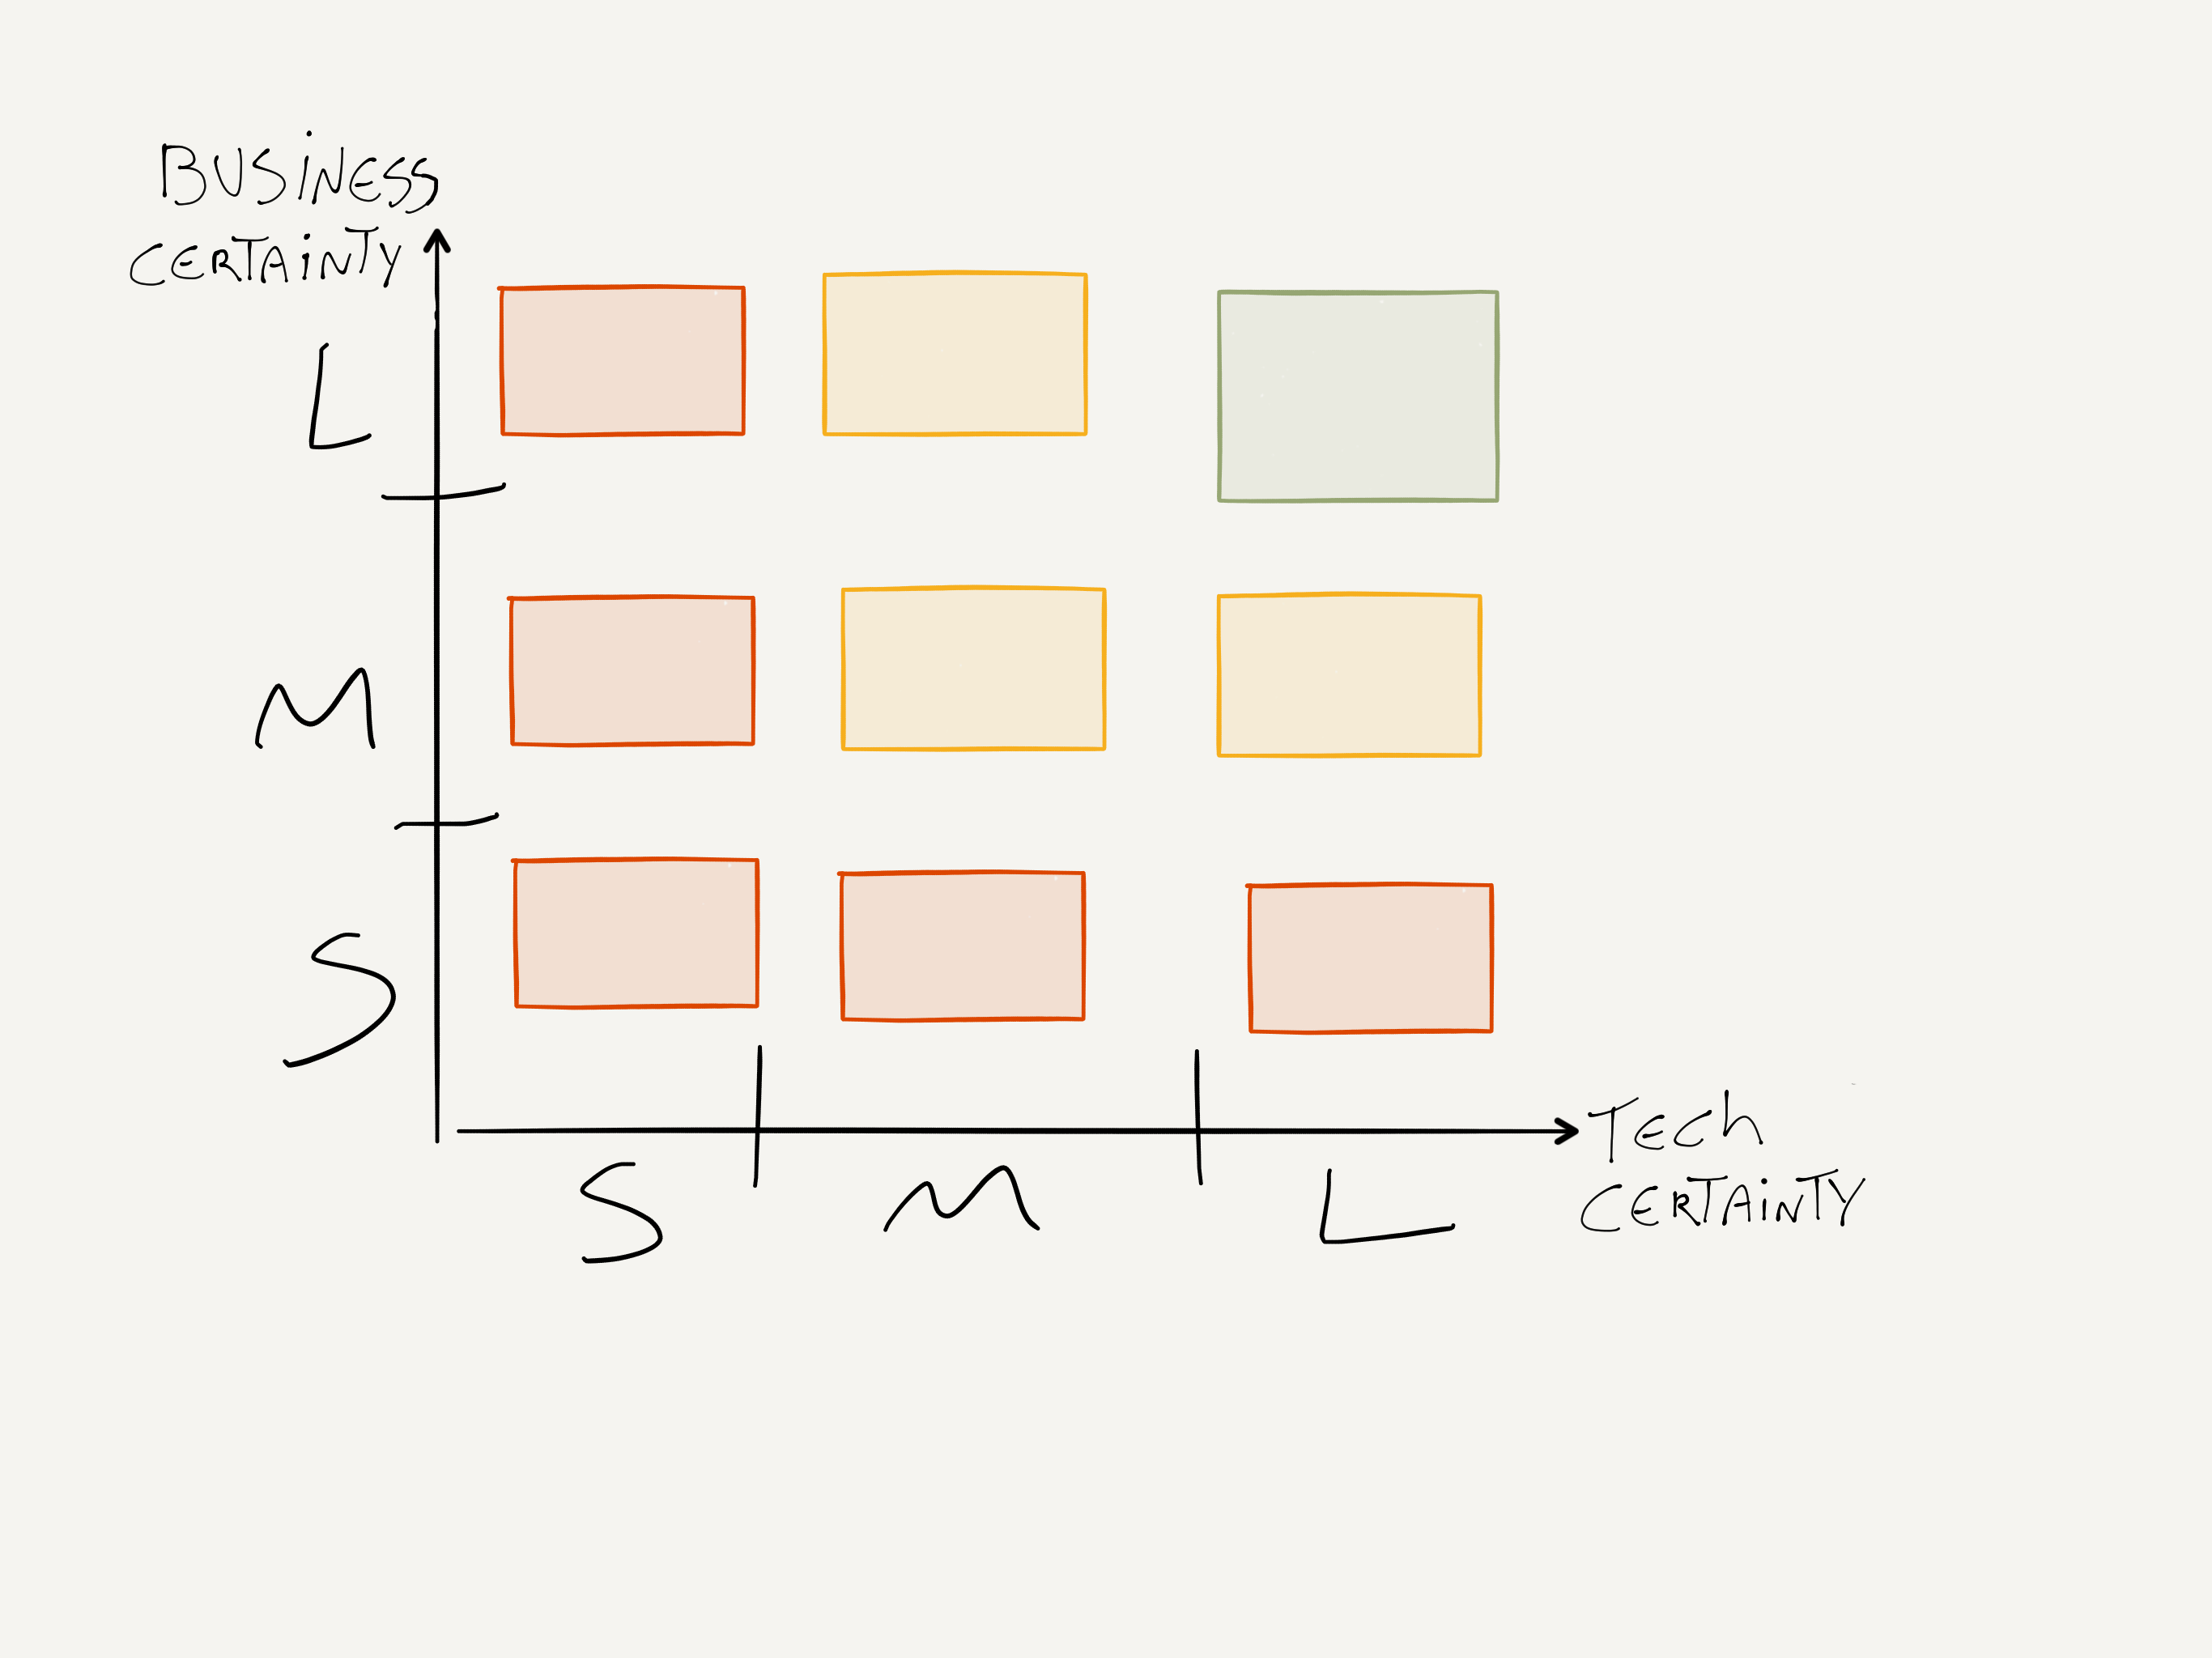 BUSiNESS
CERTAiNTY
L
M
S
S M L
TECh
CERTAiNTY